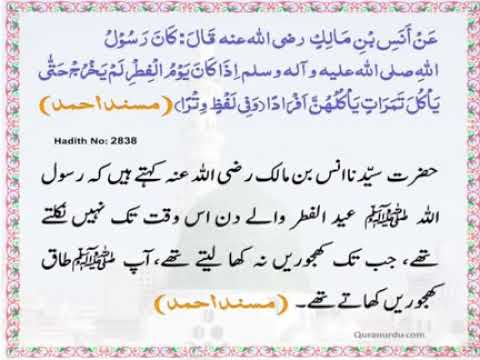 عَنْ أَنَسِ بْنِ مَالِكٍ رضی اللہ عنه قَالَ: كَانَ رَسُوْلُ
اللهِ صلی اللہ علیه و آله وسلم إِذَا كَانَ يَوْمُ الْفِطْرِ لَمْ يَخْرُجْ حَتّٰى
يَأْكُلَ تَمَرَاتٍ يَأْكُلُهُنَّ أَفْرَادًا (وَفِي لَفْظٍ وِتْرًا) (مسند احمد)
Hadith No: 2838
حضرت سیّدنا انس بن مالک رضی اللہ عنہ کہتے ہیں کہ رسول
اللہ ﷺ عید الفطر والے دن اس وقت تک نہیں نکلتے
تھے، جب تک کھجوریں نہ کھا لیتے تھے، آپ ﷺ طاق
کھجوریں کھاتے تھے۔ (مسند احمد)
Quranurdu.com